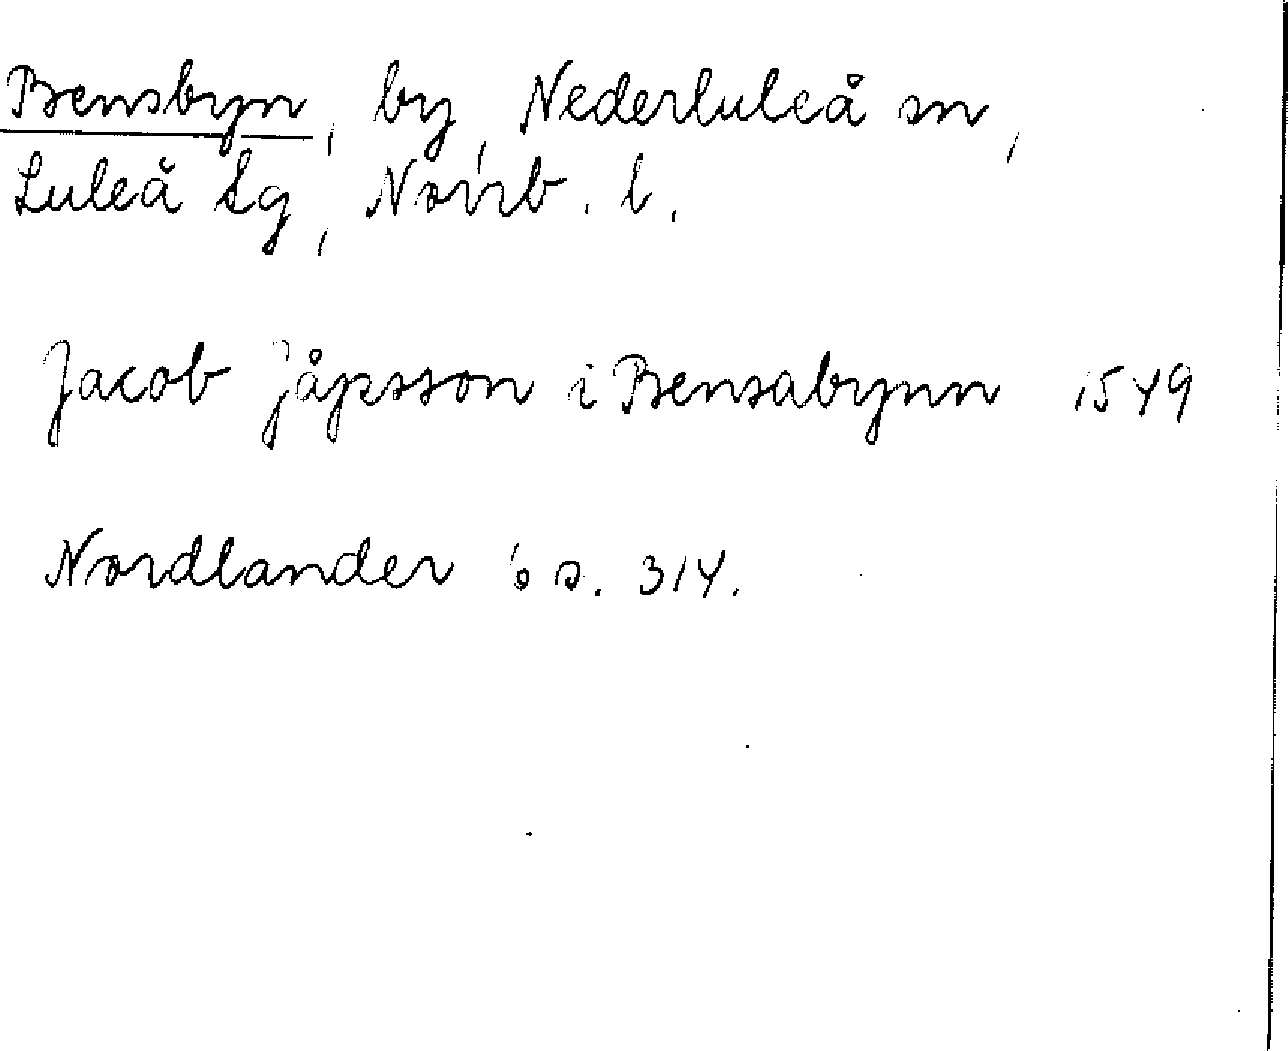 Bensbyn, by, Nederluleå sn,
Luleå tg, Norrb. l.
Jacob Jåpsson i Bensabynn 1549
Nordlander 6 s. 314.